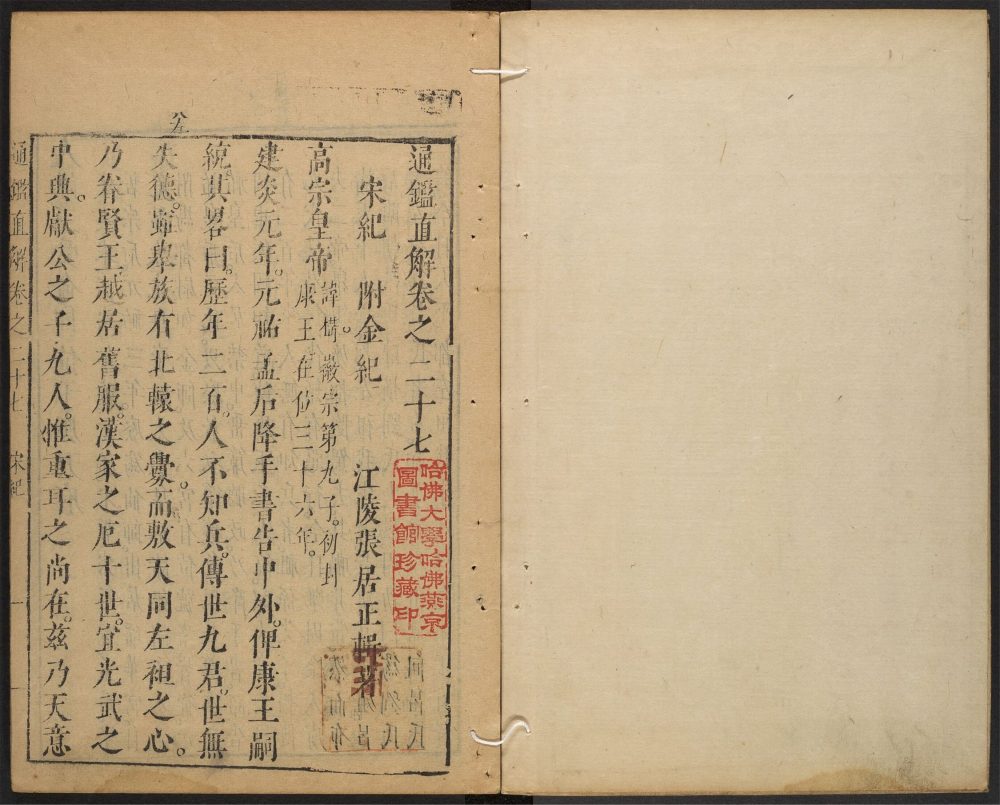 通鑑直解卷之二十七
宋紀 附金紀 江陵張居正輯著
高宗皇帝 諱構。徽宗第九子。初封
康王在位三十六年。
建炎元年。元祐孟后降手書告中外。俾康王嗣
統。其畧曰。歷年二百。人不知兵。傳世九君。世無
失德。雖舉族有北轅之釁。而敷天同左袒之心。
乃眷賢王越居舊服。漢家之厄十世。宜光武之
中興。獻公之子九人。惟重耳之尚在。茲乃天意
通鑑直解卷之二十七 宋紀 一
哈佛大學哈佛燕京
圖書館珍藏印